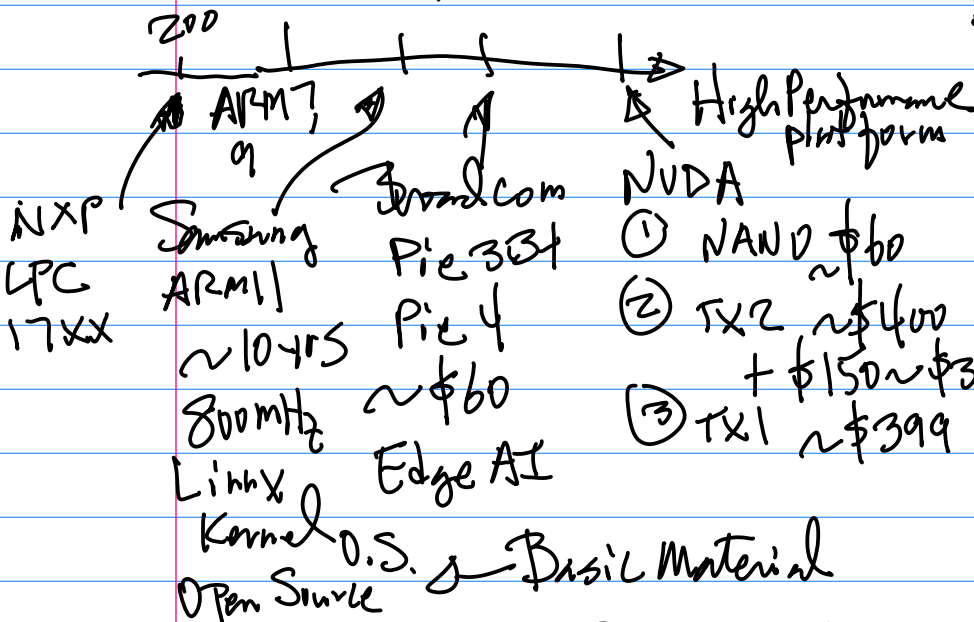 200
ARM7,
9
High Performance
platform
NXP
LPC
17XX
Samsung
ARM11
~10yrs
800mHz
Linux
Kernel O.S.
Open Source
Broadcom
Pie 3B+
Pie 4
~$60
Edge AI
Basic Material
NVDA
① NANO ~$60
② TX2 ~$400
+ $150~$3
③ TX1 ~$399